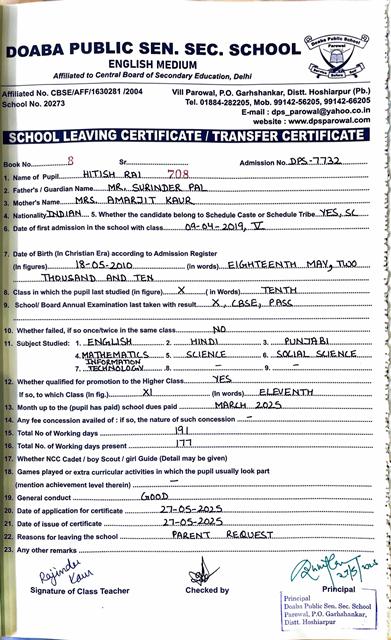 DOABA PUBLIC SEN. SEC. SCHOOL
ENGLISH MEDIUM
Affiliated to Central Board of Secondary Education, Delhi
Doaba Public School
Parowal
Affiliated No. CBSE/AFF/1630281 /2004
School No. 20273
Vill Parowal, P.O. Garhshankar, Distt. Hoshiarpur (Pb.)
Tel. 01884-282205, Mob. 99142-56205, 99142-66205
E-mail : dps_parowal@yahoo.co.in
website : www.dpsparowal.com
SCHOOL LEAVING CERTIFICATE / TRANSFER CERTIFICATE
Book No. 8 Sr. 708 Admission No. DPS-7732
1. Name of Pupil HITISH RAI
2. Father's / Guardian Name MR. SURINDER PAL
3. Mother's Name MRS. AMARJIT KAUR
4. Nationality INDIAN 5. Whether the candidate belong to Schedule Caste or Schedule Tribe YES, SC
6. Date of first admission in the school with class 09-04-2019, V
7. Date of Birth (In Christian Era) according to Admission Register
(In figures) 18-05-2010 (in words) EIGHTEENTH MAY, TWO
THOUSAND AND TEN
8. Class in which the pupil last studied (in figure) X ( in Words) TENTH
9. School/ Board Annual Examination last taken with result X, CBSE, PASS
10. Whether failed, if so once/twice in the same class NO
11. Subject Studied: 1. ENGLISH 2. HINDI 3. PUNJABI
4. MATHEMATICS 5. SCIENCE 6. SOCIAL SCIENCE
7. INFORMATION TECHNOLOGY 8. – 9. –
12. Whether qualified for promotion to the Higher Class YES
If so, to which Class (In fig.) XI (In words) ELEVENTH
13. Month up to the (pupil has paid) school dues paid MARCH 2025
14. Any fee concession availed of : if so, the nature of such concession –
15. Total No of Working days 191
16. Total No. of Working days present 177
17. Whether NCC Cadet / boy Scout / girl Guide (Detail may be given)
18. Games played or extra curricular activities in which the pupil usually look part
(mention achievement level therein) –
19. General conduct GOOD
20. Date of application for certificate 27-05-2025
21. Date of issue of certificate 27-05-2025
22. Reasons for leaving the school PARENT REQUEST
23. Any other remarks
Rajinder Kaur
27/5/2025
Signature of Class Teacher Checked by Principal
Principal
Doaba Public Sen. Sec. School
Parowal, P.O. Garhshankar,
Distt. Hoshiarpur